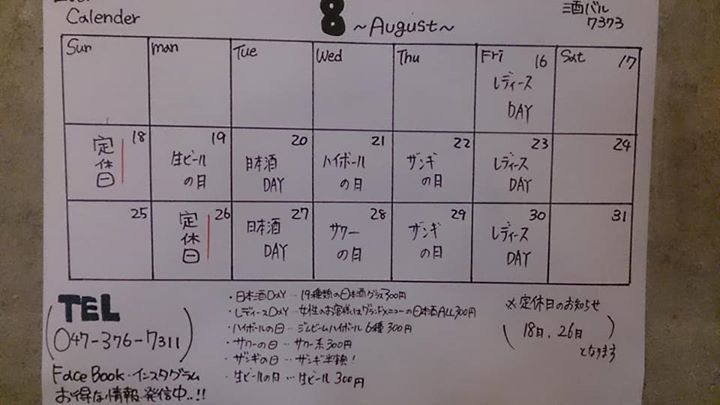 Calender
8 ~August~
酒バル
7373
Sun man Tue Wed Thu Fri Sat
16 17
レディース
DAY
18 19 20 21 22 23 24
定休日 生ビールの日 日本酒DAY ハイボールの日 ザンギの日 レディースDAY
25 26 27 28 29 30 31
定休日 日本酒DAY サワーの日 ザンギの日 レディースDAY
TEL
(047-376-7311)
FaceBook・インスタグラム
お得な情報発信中..!!
・日本酒DAY…19種類の日本酒グラス300円
・レディースDAY…女性のお客様はグランドメニューの日本酒ALL300円
・ハイボールの日…ジムビームハイボール 6種 300円
・サワーの日…サワー系300円
・ザンギの日…ザンギ半額!
・生ビールの日…生ビール 300円
※定休日のお知らせ
(18日、26日
となります)